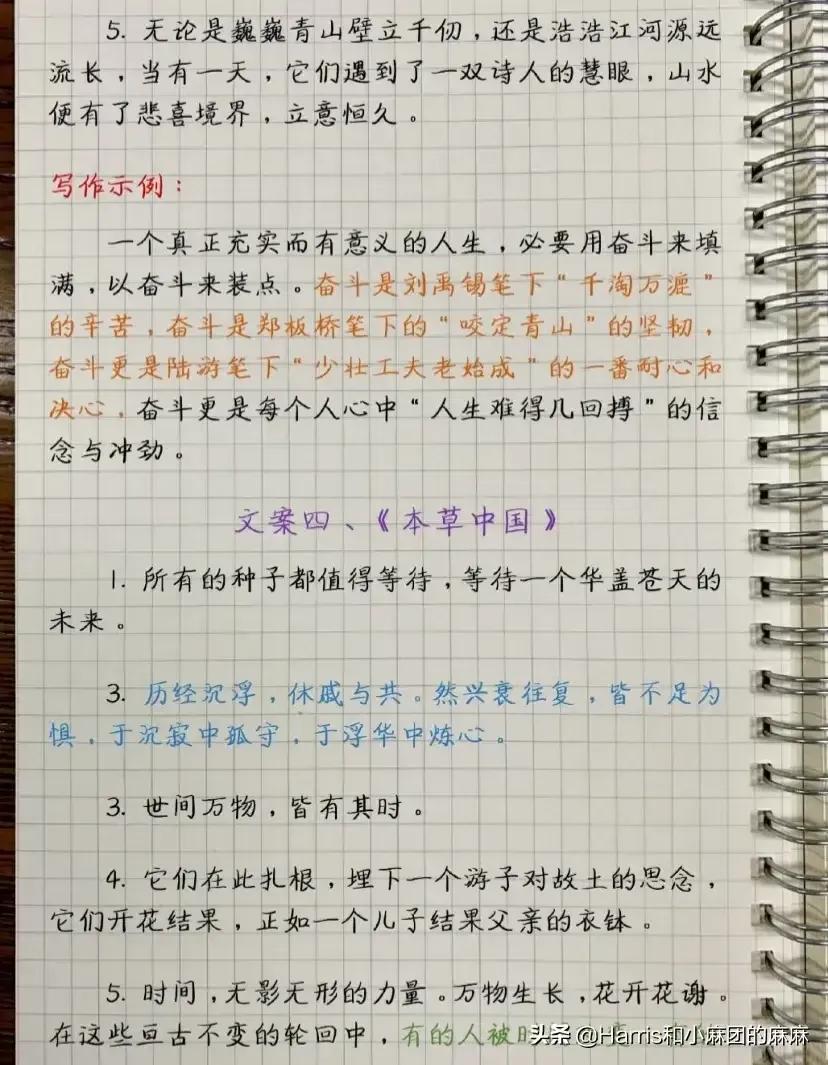 5. 无论是巍巍青山壁立千仞，还是浩浩江河源远
流长，当有一天，它们遇到了一双诗人的慧眼，山水
便有了悲喜境界，立意恒久。
写作示例：
一个真正充实而有意义的人生，必要用奋斗来填
满，以奋斗来装点。奋斗是刘禹锡笔下“千淘万漉”
的辛苦，奋斗是郑板桥笔下的“咬定青山”的坚韧，
奋斗更是陆游笔下“少壮工夫老始成”的一番耐心和
决心，奋斗更是每个人心中“人生难得几回搏”的信
念与冲劲。
文案四、《本草中国》
1. 所有的种子都值得等待，等待一个华盖苍天的
未来。
3. 历经沉浮，休戚与共。然兴衰往复，皆不足为
惧，于沉寂中孤守，于浮华中炼心。
3. 世间万物，皆有其时。
4. 它们在此扎根，埋下一个游子对故土的思念，
它们开花结果，正如一个儿子结果父亲的衣钵。
5. 时间，无影无形的力量。万物生长，花开花谢。
在这些亘古不变的轮回中，有的人被时
头条 @Harris和小麻团的麻麻